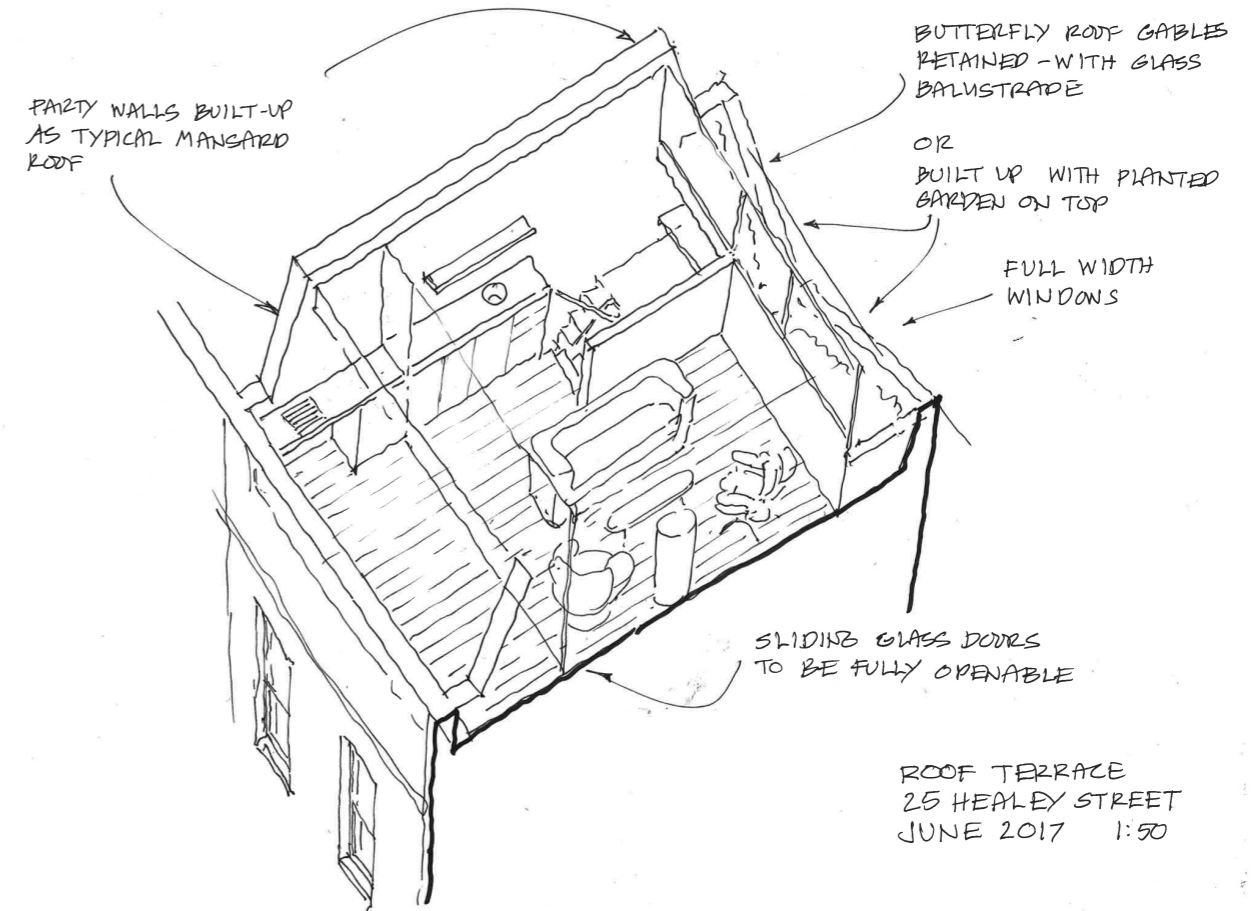 PARTY WALLS BUILT-UP
AS TYPICAL MANSARD
ROOF
BUTTERFLY ROOF GABLES
RETAINED - WITH GLASS
BALUSTRADE
OR
BUILT UP WITH PLANTED
GARDEN ON TOP
FULL WIDTH
WINDOWS
SLIDING GLASS DOORS
TO BE FULLY OPENABLE
ROOF TERRACE
25 HEALEY STREET
JUNE 2017 1:50